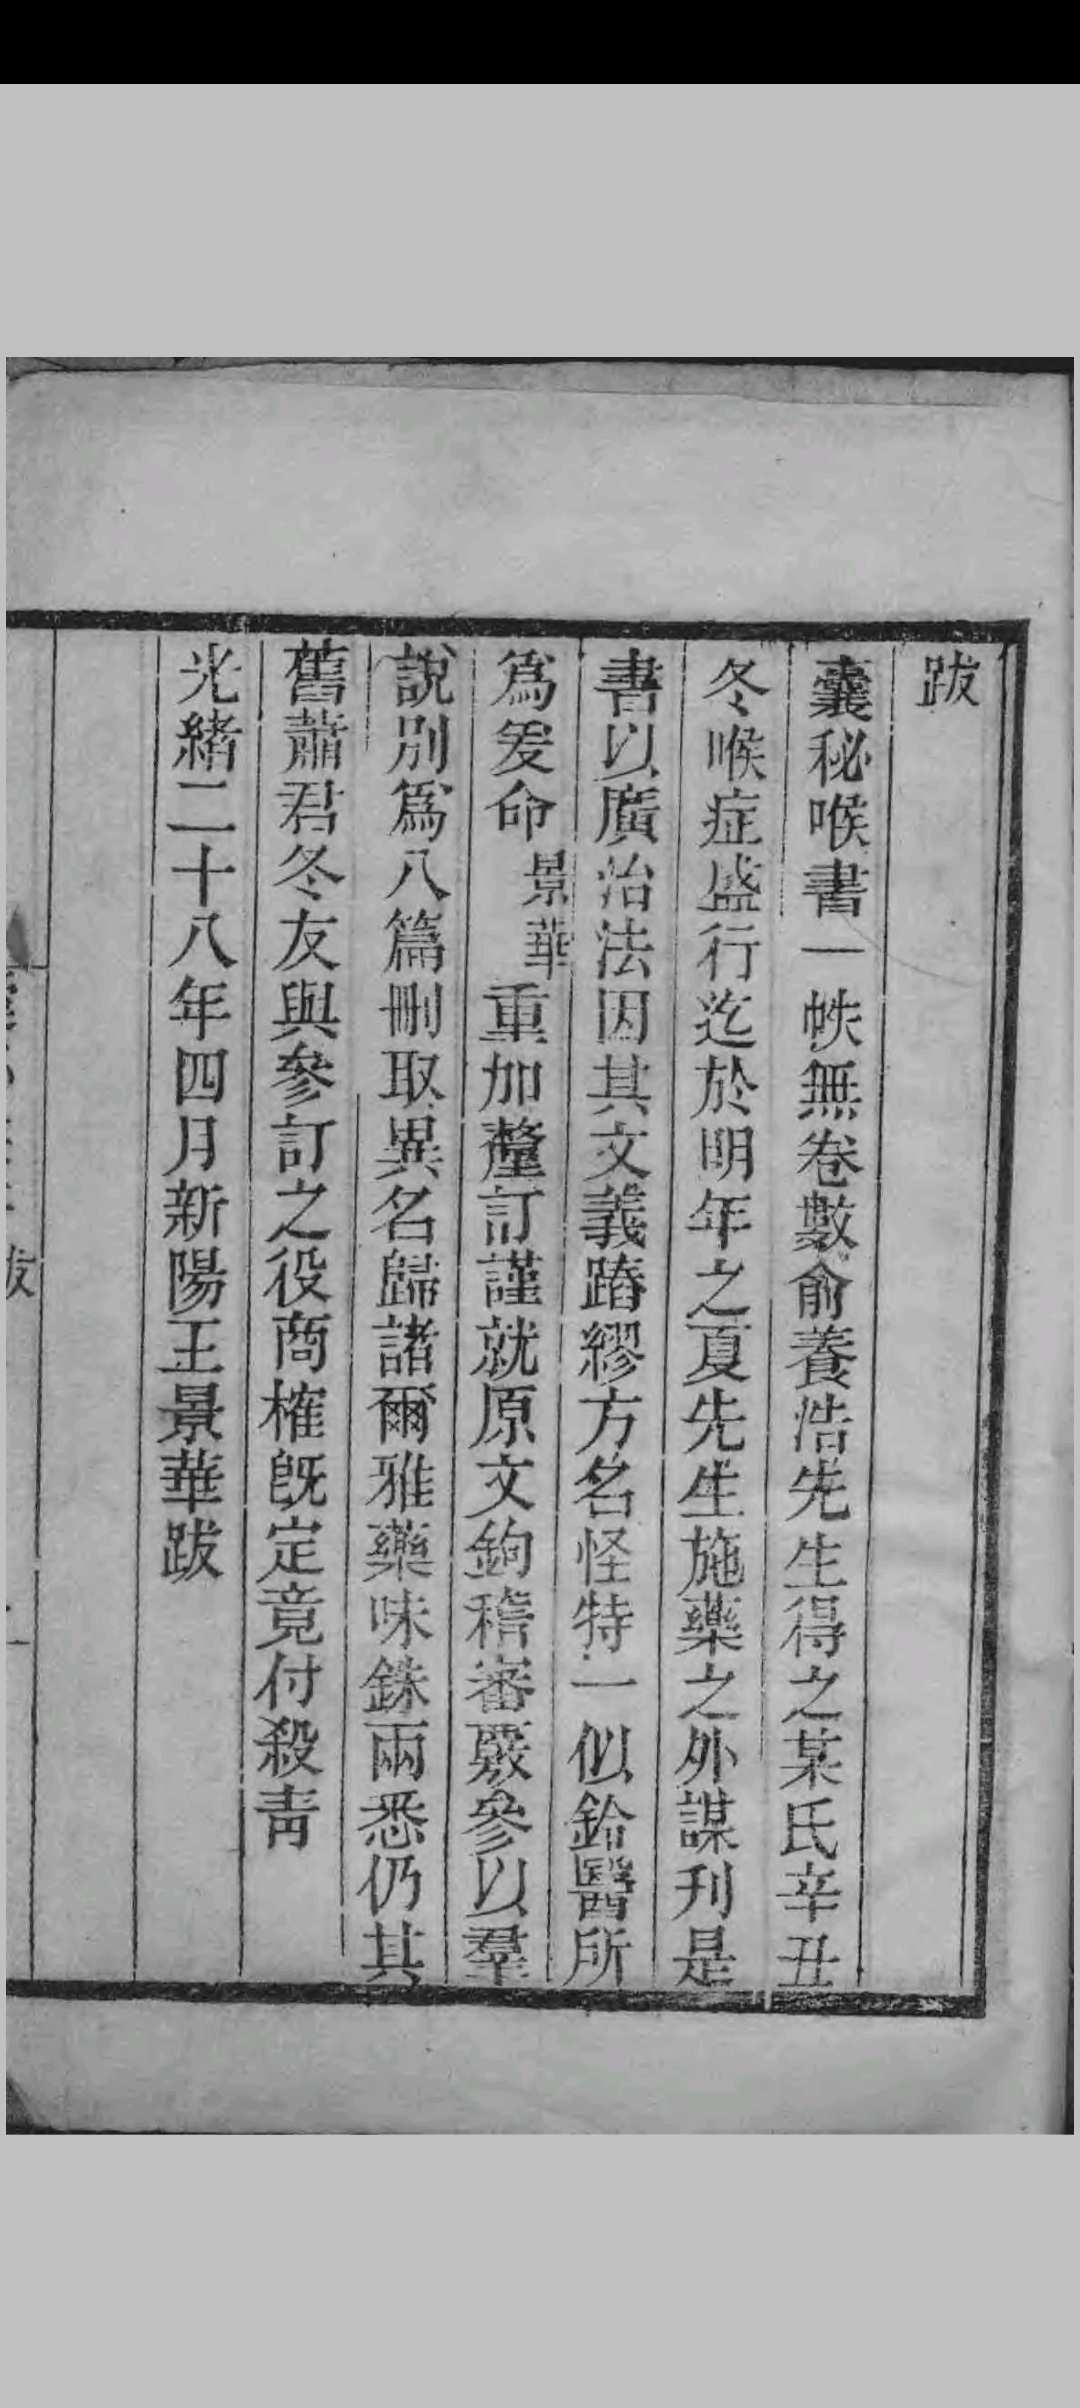 跋
囊秘喉書一帙無卷數俞養浩先生得之某氏辛丑
冬喉症盛行迄於明年之夏先生施藥之外謀刋是
書以廣治法因其文義踳繆方名怪特一似鈴醫所
爲爰命景華重加釐訂謹就原文鉤稽審覈參以羣
說別爲八篇刪取異名歸諸爾雅藥味銖兩悉仍其
舊蕭君冬友與參訂之役商榷旣定竟付殺青
光緒二十八年四月新陽王景華跋